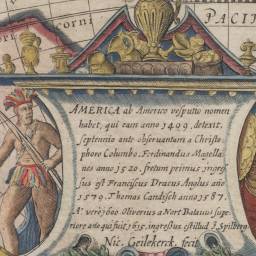 PACI
AMERICA ab Americo vesputto nomen
habet, qui eam anno 1499, detexit,
septennio ante observantam a Christo
phoro Columbo. Ferdinandus Magella
nes anno 1520, fretum primus ingres
sus est Franciscus Dracus Anglus año
1579, Thomas Candisch anno 1587.
At vero 1600 Oliverius a Nort Batavus supe
riore año qui fuit 1615, ingressus est illud J. Spilberg
Nic. Geilekerck. fecit